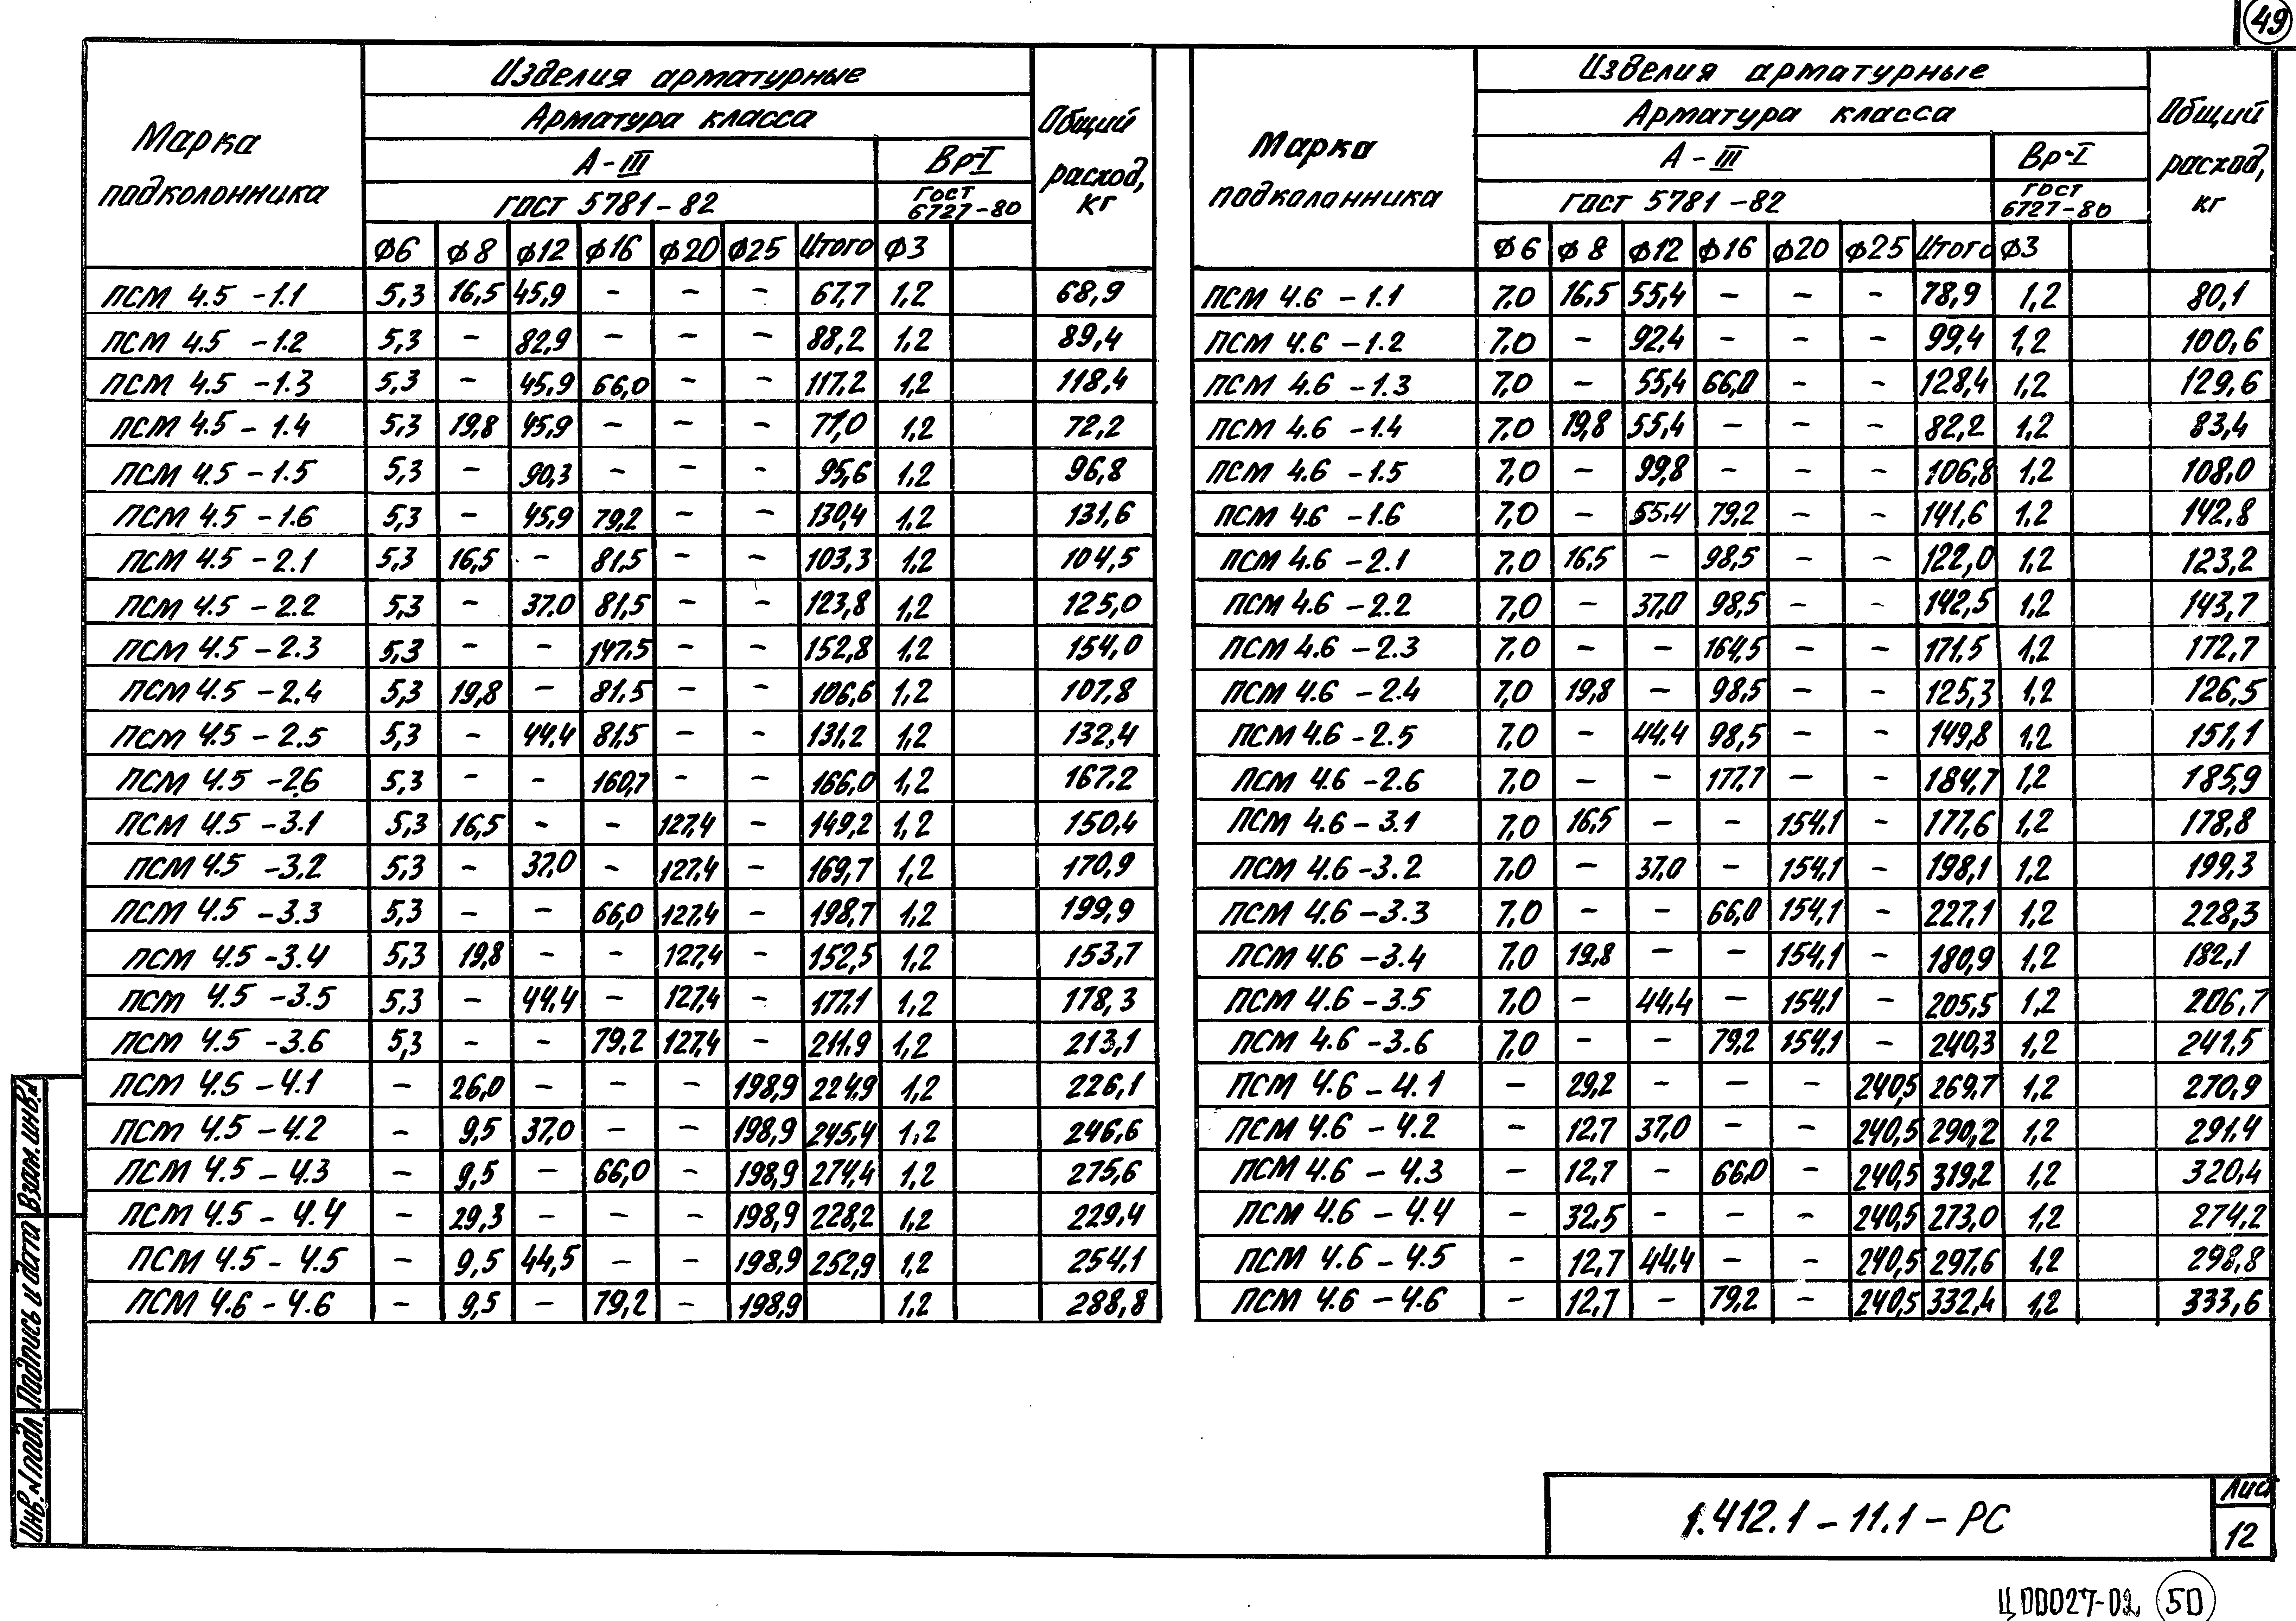 49
Изделия арматурные
Арматура класса
Марка подколонника
А-III
Вр-I
Общий расход, кг
ГОСТ 5781-82
ГОСТ 6727-80
Ф6 Ф8 Ф12 Ф16 Ф20 Ф25 Итого Ф3
ПСМ 4.5 -1.1 5,3 16,5 45,9 - - - 67,7 1,2 68,9
ПСМ 4.5 -1.2 5,3 - 82,9 - - - 88,2 1,2 89,4
ПСМ 4.5 -1.3 5,3 - 45,9 66,0 - - 117,2 1,2 118,4
ПСМ 4.5 -1.4 5,3 19,8 45,9 - - - 71,0 1,2 72,2
ПСМ 4.5 -1.5 5,3 - 90,3 - - - 95,6 1,2 96,8
ПСМ 4.5 -1.6 5,3 - 45,9 79,2 - - 130,4 1,2 131,6
ПСМ 4.5 -2.1 5,3 16,5 - 81,5 - - 103,3 1,2 104,5
ПСМ 4.5 -2.2 5,3 - 37,0 81,5 - - 123,8 1,2 125,0
ПСМ 4.5 -2.3 5,3 - - 147,5 - - 152,8 1,2 154,0
ПСМ 4.5 -2.4 5,3 19,8 - 81,5 - - 106,6 1,2 107,8
ПСМ 4.5 -2.5 5,3 - 44,4 81,5 - - 131,2 1,2 132,4
ПСМ 4.5 -2.6 5,3 - - 160,7 - - 166,0 1,2 167,2
ПСМ 4.5 -3.1 5,3 16,5 - - 127,4 - 149,2 1,2 150,4
ПСМ 4.5 -3.2 5,3 - 37,0 - 127,4 - 169,7 1,2 170,9
ПСМ 4.5 -3.3 5,3 - - 66,0 127,4 - 198,7 1,2 199,9
ПСМ 4.5 -3.4 5,3 19,8 - - 127,4 - 152,5 1,2 153,7
ПСМ 4.5 -3.5 5,3 - 44,4 - 127,4 - 177,1 1,2 178,3
ПСМ 4.5 -3.6 5,3 - - 79,2 127,4 - 211,9 1,2 213,1
ПСМ 4.5 -4.1 - 26,0 - - - 198,9 224,9 1,2 226,1
ПСМ 4.5 -4.2 - 9,5 37,0 - - 198,9 245,4 1,2 246,6
ПСМ 4.5 -4.3 - 9,5 - 66,0 - 198,9 274,4 1,2 275,6
ПСМ 4.5 -4.4 - 29,3 - - - 198,9 228,2 1,2 229,4
ПСМ 4.5 -4.5 - 9,5 44,5 - - 198,9 252,9 1,2 254,1
ПСМ 4.6 -4.6 - 9,5 - 79,2 - 198,9 1,2 288,8
Изделия арматурные
Арматура класса
Марка подколонника
А-III
Вр-I
Общий расход, кг
ГОСТ 5781-82
ГОСТ 6727-80
Ф6 Ф8 Ф12 Ф16 Ф20 Ф25 Итого Ф3
ПСМ 4.6 -1.1 7,0 16,5 55,4 - - - 78,9 1,2 80,1
ПСМ 4.6 -1.2 7,0 - 92,4 - - - 99,4 1,2 100,6
ПСМ 4.6 -1.3 7,0 - 55,4 66,0 - - 128,4 1,2 129,6
ПСМ 4.6 -1.4 7,0 19,8 55,4 - - - 82,2 1,2 83,4
ПСМ 4.6 -1.5 7,0 - 99,8 - - - 106,8 1,2 108,0
ПСМ 4.6 -1.6 7,0 - 55,4 79,2 - - 141,6 1,2 142,8
ПСМ 4.6 -2.1 7,0 16,5 - 98,5 - - 122,0 1,2 123,2
ПСМ 4.6 -2.2 7,0 - 37,0 98,5 - - 142,5 1,2 143,7
ПСМ 4.6 -2.3 7,0 - - 164,5 - - 171,5 1,2 172,7
ПСМ 4.6 -2.4 7,0 19,8 - 98,5 - - 125,3 1,2 126,5
ПСМ 4.6 -2.5 7,0 - 44,4 98,5 - - 149,8 1,2 151,1
ПСМ 4.6 -2.6 7,0 - - 177,7 - - 184,7 1,2 185,9
ПСМ 4.6 -3.1 7,0 16,5 - - 154,1 - 177,6 1,2 178,8
ПСМ 4.6 -3.2 7,0 - 37,0 - 154,1 - 198,1 1,2 199,3
ПСМ 4.6 -3.3 7,0 - - 66,0 154,1 - 227,1 1,2 228,3
ПСМ 4.6 -3.4 7,0 19,8 - - 154,1 - 180,9 1,2 182,1
ПСМ 4.6 -3.5 7,0 - 44,4 - 154,1 - 205,5 1,2 206,7
ПСМ 4.6 -3.6 7,0 - - 79,2 154,1 - 240,3 1,2 241,5
ПСМ 4.6 -4.1 - 29,2 - - - 240,5 269,7 1,2 270,9
ПСМ 4.6 -4.2 - 12,7 37,0 - - 240,5 290,2 1,2 291,4
ПСМ 4.6 -4.3 - 12,7 - 66,0 - 240,5 319,2 1,2 320,4
ПСМ 4.6 -4.4 - 32,5 - - - 240,5 273,0 1,2 274,2
ПСМ 4.6 -4.5 - 12,7 44,4 - - 240,5 297,6 1,2 298,8
ПСМ 4.6 -4.6 - 12,7 - 79,2 - 240,5 332,4 1,2 333,6
Взам. инв.№
Подпись и дата
Инв.№ подл.
1.412.1-11.1-РС
Лист
12
Ц00027-02 50